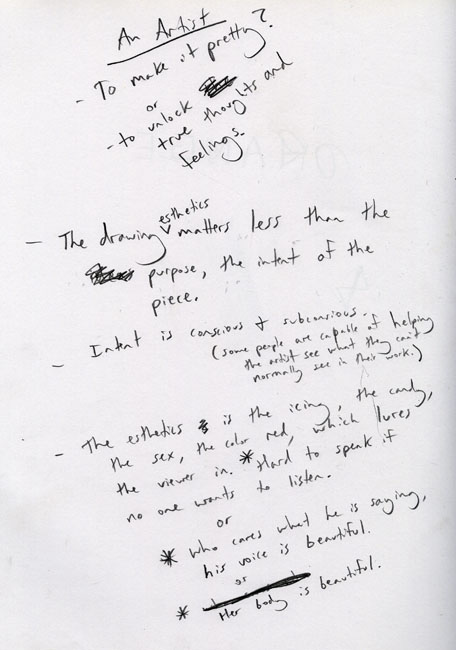 An Artist
- To make it pretty?
or
- to unlock
true thoughts and
feelings.
- The drawing esthetics matters less than the
purpose, the intent of the
piece.
- Intent is conscious & subconsious.
(some people are capable of helping
the artist see what they can't
normally see in their work.)
- The esthetics is the icing, the candy,
the sex, the color red, which lures
the viewer in. * Hard to speak if
no one wants to listen.
or
* who cares what he is saying,
his voice is beautiful.
or
* Her body is beautiful.